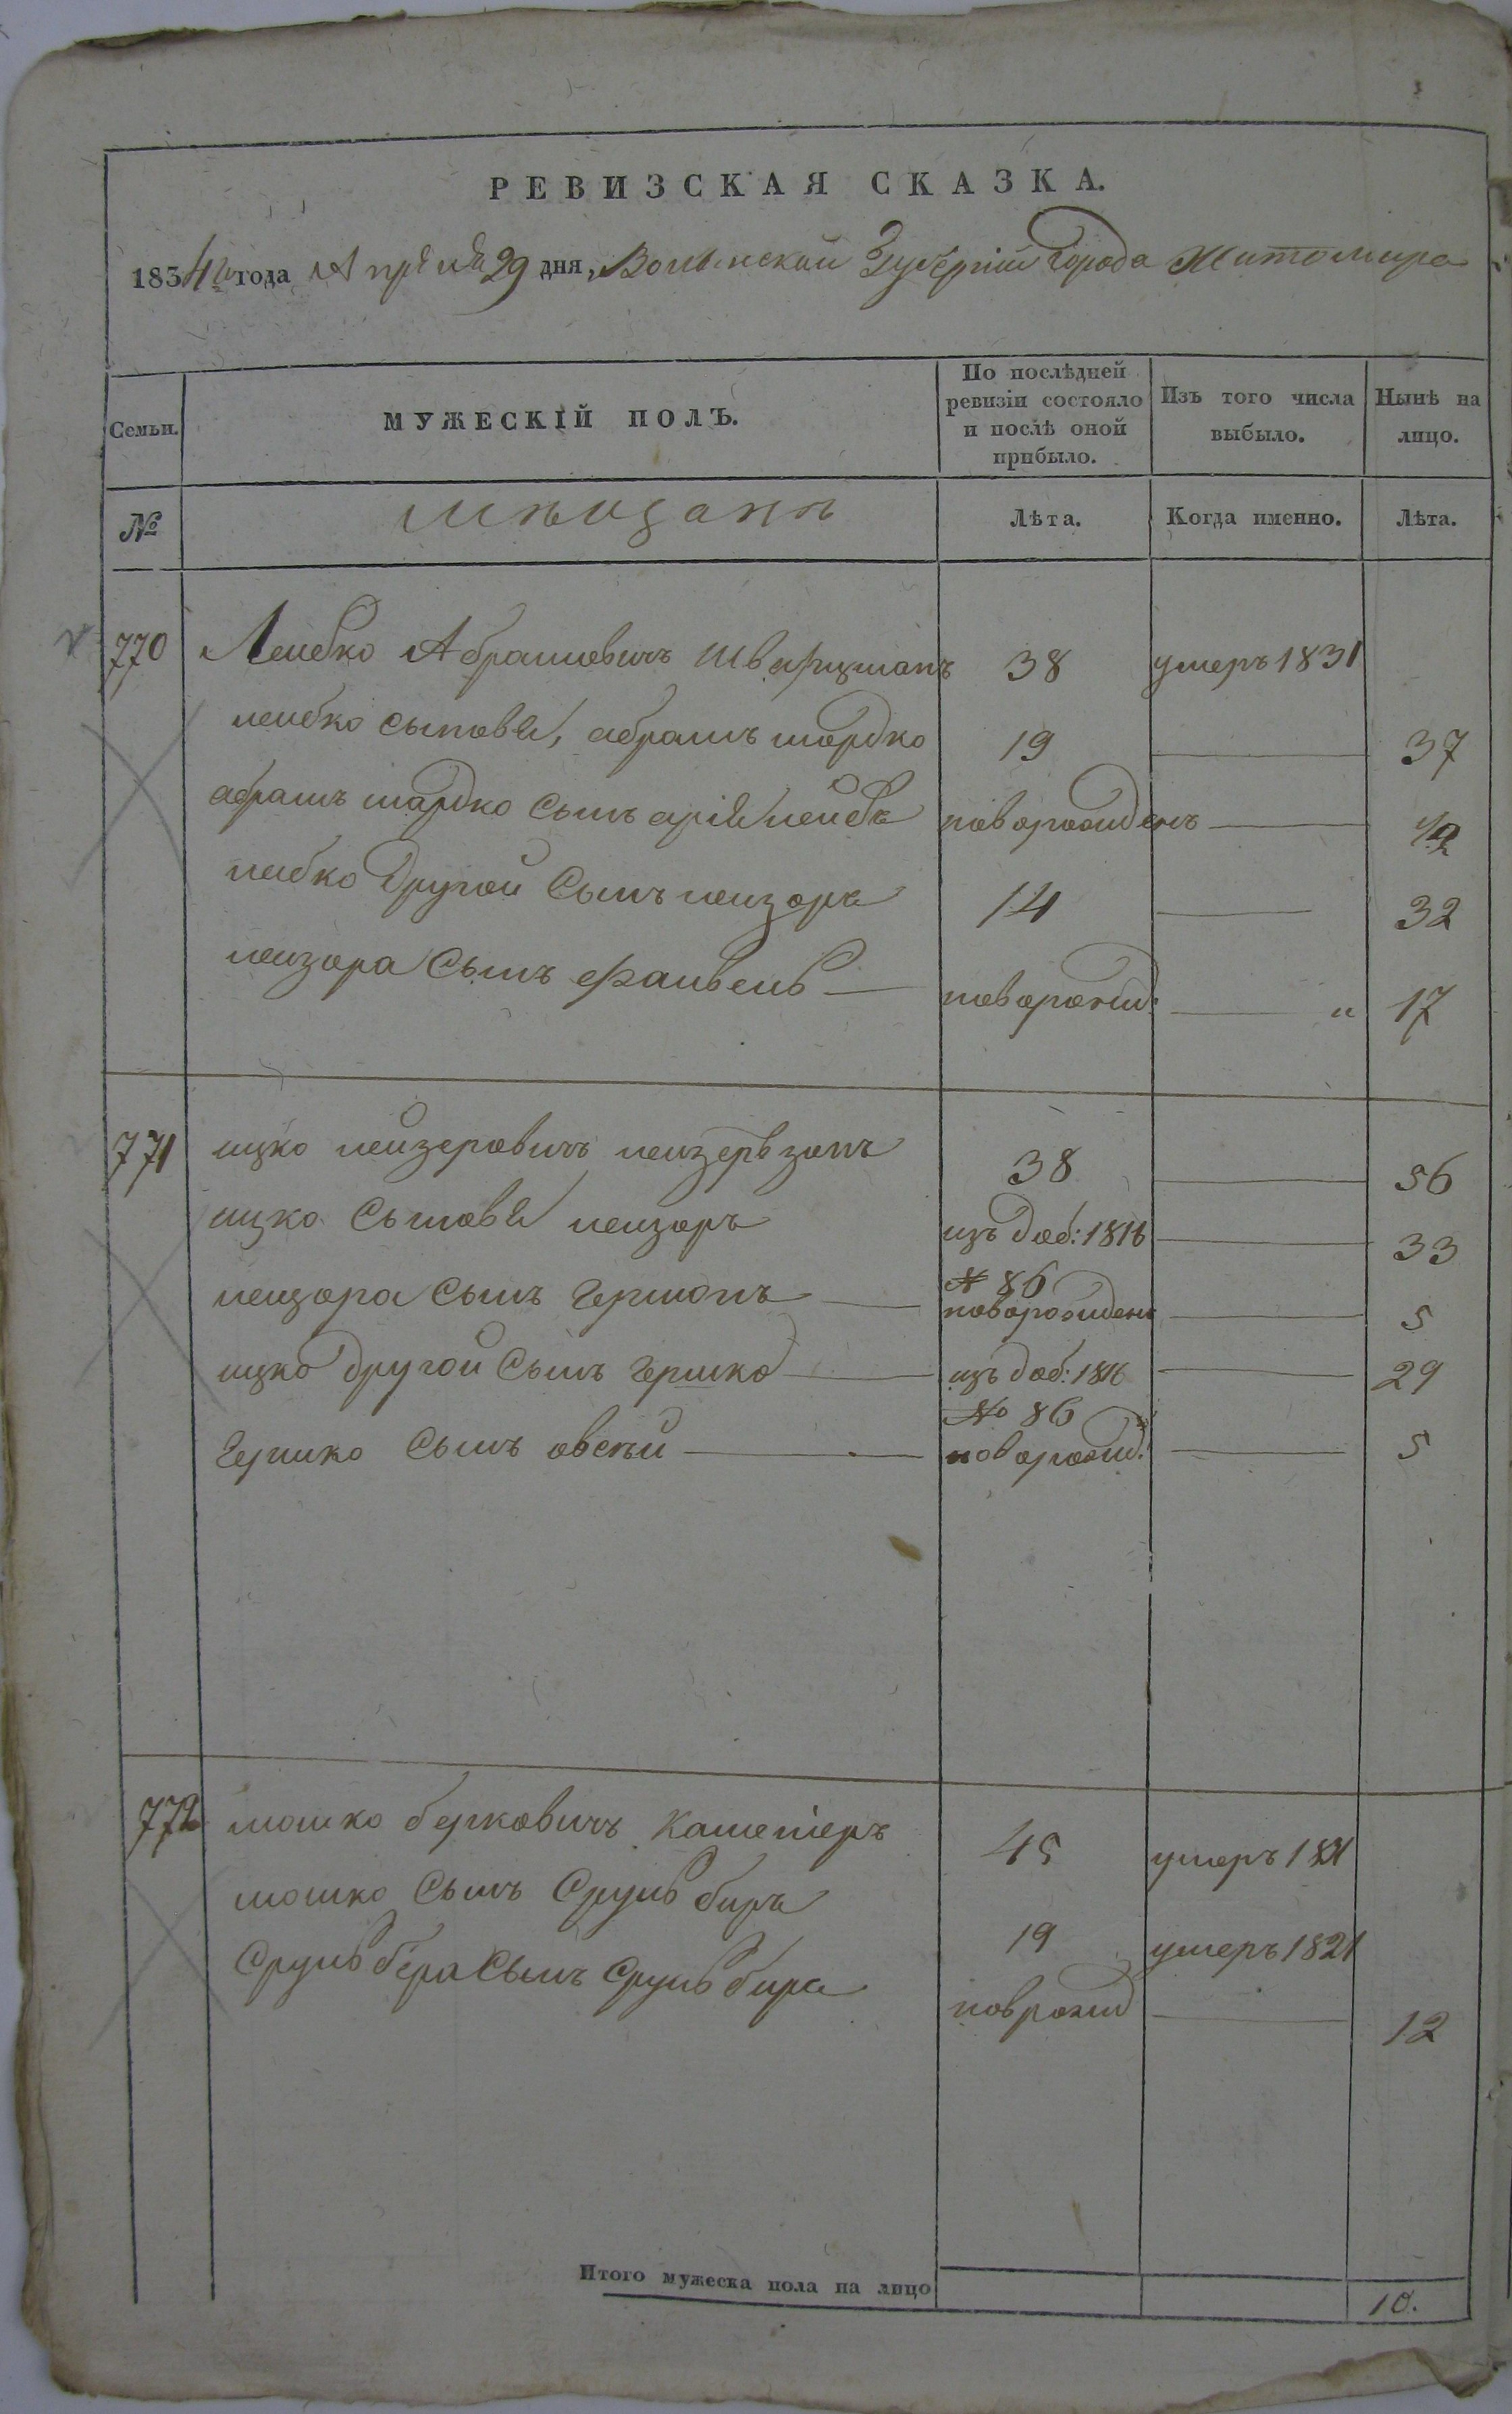 РЕВИЗСКАЯ СКАЗКА.
1834го года Апреля 29 дня, Волынской Губерніи Города Житомира
Семьи.
МУЖЕСКІЙ ПОЛЪ.
По послѣдней ревизіи состояло и послѣ оной прибыло.
Изъ того числа выбыло.
Нынѣ на лицо.
№
мѣщанъ
Лѣта.
Когда именно.
Лѣта.
770 Лейбко Абрамовичъ Шварцманъ 38 умеръ 1831
лейбко сыновя, абрамъ мордко 19 37
абрамъ мордко сынъ арія лейбъ новорожденъ
лейбко Другой Сынъ лейзоръ 14 32
лейзора Сынъ файвель новорожд: 17
771 ицко лейзеровичъ лейзерзонъ 38 56
ицко Сыновя лейзоръ изъ доб: 1816 № 86 33
лейзора Сынъ Гершонъ новорожденъ 5
ицко другой Сынъ Гершко изъ доб: 1816 № 86 29
Гершко Сынъ овсѣй новорожд: 5
772 мошко берковичъ 45 умеръ
мошко Сынъ Сруль беръ 19 умеръ 1821
Сруль бера Сынъ Сруль бера новрожд 12
Итого мужеска пола на лицо 10.